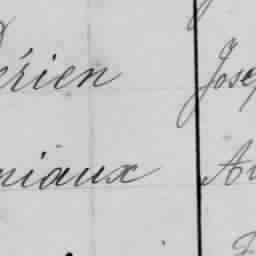 érien Jose
niaux A